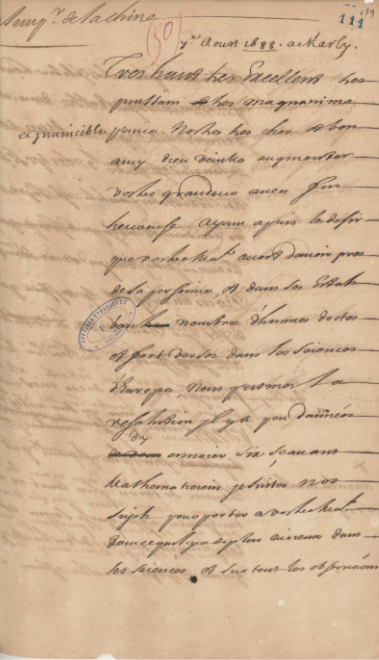 Empr. de la chine
(50)
111
39
7e. Aoust 1688. a Marly.
Tres haut tres Excellent tres
puissant et tres magnanime
et jnuincible prince Nostre tres cher et bon
amy dieu veuille augmenter
vostre grandeur auec fin
heureuse ayant apris le desir
que vostre Mate. auoit d'auoir pres
de sa personne, et dans ses Estats
bon nombre d'hommes doctes
et fort versez dans les sciences
d'Europe, Nous prismes la
resolution jl y a peu d'années
dy enuoier six scauans
Mathematiciens jesuites nos
sujets pour porter a vostre Mate.
tout ce quil y a de plus curieux dans
les sciences, et sur tout les obseruaons